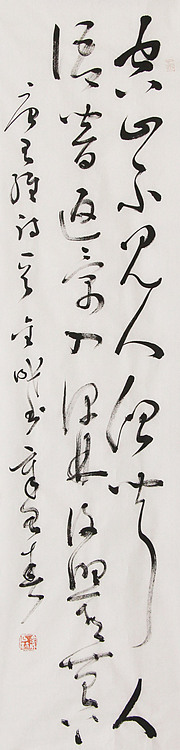 空山不見人但聞人
語響返景入深林復照青苔上
唐王維詩一首